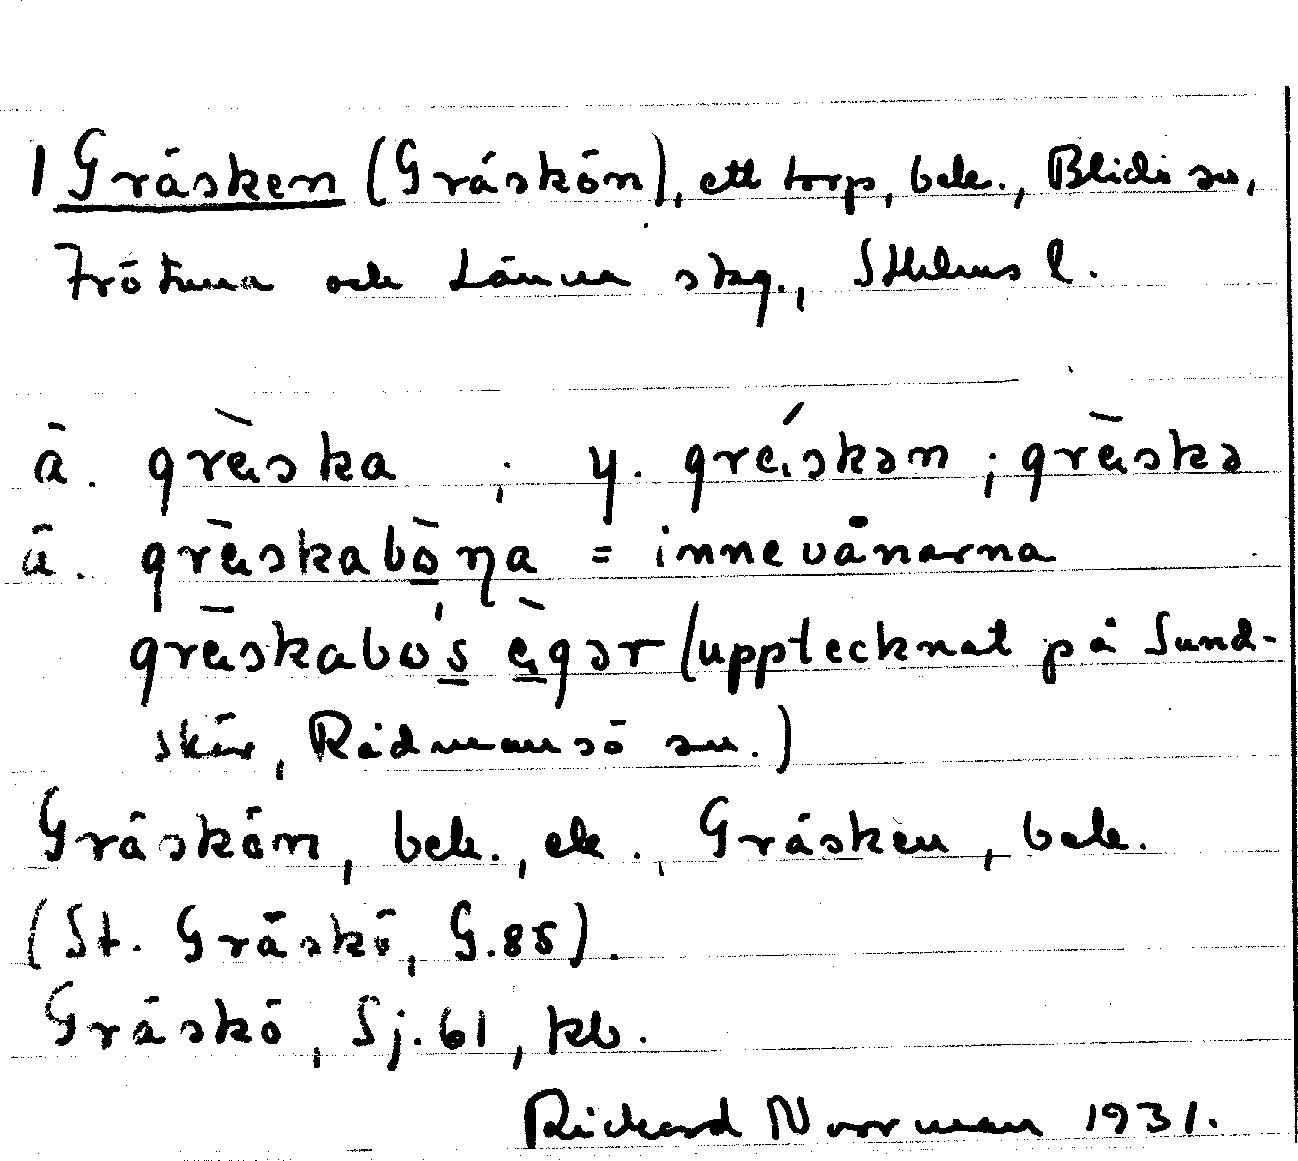 1 Gräsken (Gräskön), ett torp, bek., Blidö sn,
Frötuna och Länna skg., Sthlms l.
ä. grὲska ; y. grέskən ; grὲskə
ä. grὲskabò̱ŋa = innevånarna
grὲskabo's̱ ὲ̱gər (upptecknat på Sund-
skär, Rådmansö sn.)
Gräskön, bek., ek., Gräsken, bek.
(St. Gräskö, G.85).
Gräskö, Sj.61, kb.
Rickard Norrman 1931.